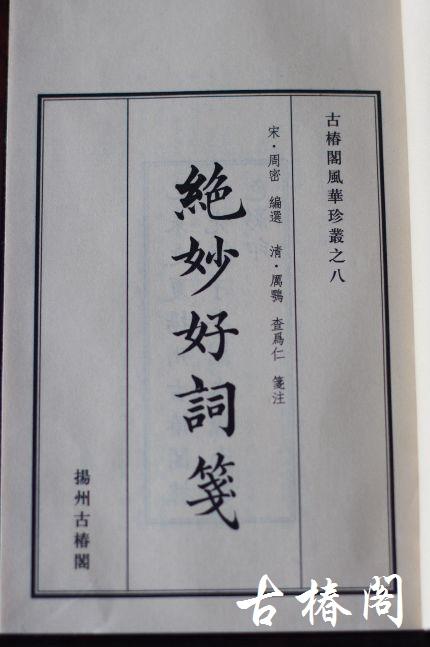 古椿閣風華珍叢之八
宋·周密 編選 清·厲鶚 查爲仁 箋注
絕妙好詞箋
揚州古椿閣
古椿阁